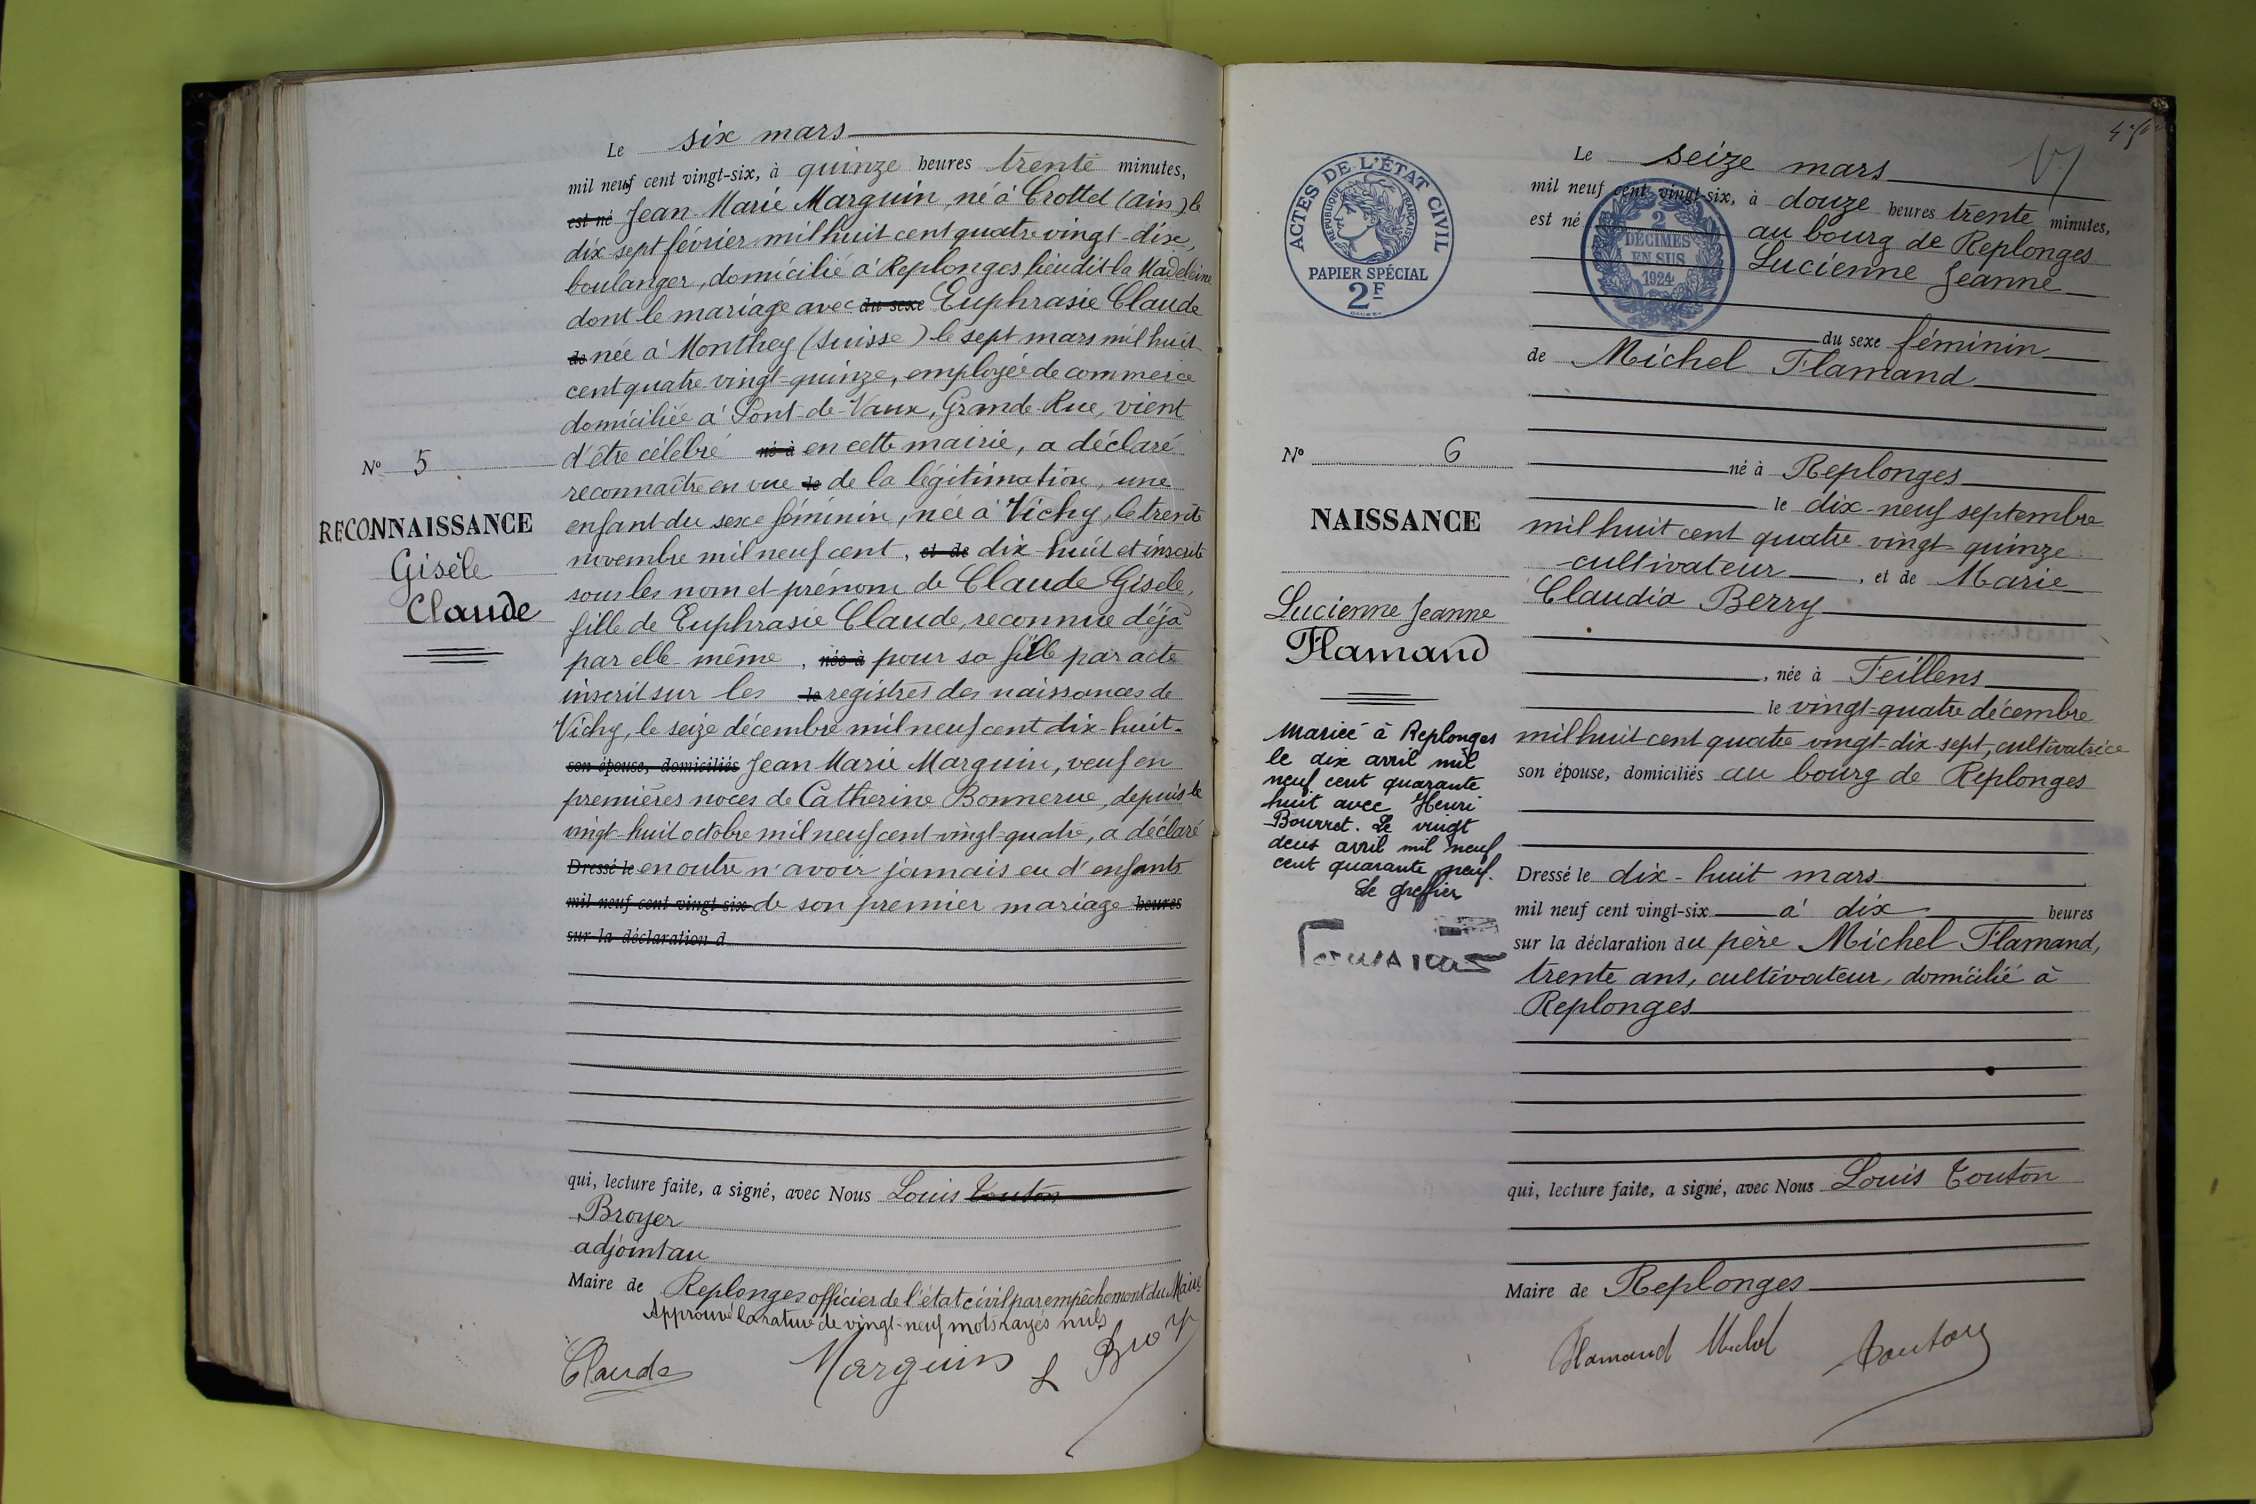 Le six mars
mil neuf cent vingt-six, à quinze heures trente minutes,
est né Jean Marie Marguin, né à Crottet (ain) le
dix sept février mil huit cent quatre vingt-dix,
boulanger, domicilié à Replonges lieudit la Madeleine
dont le mariage avec du sexe Euphrasie Claude
de née à Monthey (Suisse) le sept mars mil huit
cent quatre vingt-quinze, employée de commerce
domiciliée à Pont-de-Vaux, Grande Rue, vient
d'être célébré né à en cette mairie, a déclaré
reconnaître en vue le de la légitimation, une
enfant du sexe féminin, née à Vichy, le trente
novembre mil neuf cent, et de dix huit et inscrite
sous les nom et prénom de Claude Gisèle,
fille de Euphrasie Claude, reconnue déjà
par elle-même, née à pour sa fille par acte
inscrit sur les le registres des naissances de
Vichy, le seize décembre mil neuf cent dix-huit.
son épouse, domiciliés Jean Marie Marguin, veuf en
premières noces de Catherine Bonnerue, depuis le
vingt-huit octobre mil neuf cent vingt-quatre, a déclaré
Dressé le en outre n'avoir jamais eu d'enfants
mil neuf cent vingt-six de son premier mariage heures
sur la déclaration d
N° 5
RECONNAISSANCE
Gisèle
Claude
qui, lecture faite, a signé, avec Nous Louis Touton
Broyer
adjoint au
Maire de Replonges officier de l'état civil par empêchement du Maire
Approuvé la rature de vingt-neuf mots rayés nuls
Claude Marguin L Broy
Le seize mars
mil neuf cent vingt-six, à douze heures trente minutes,
est né au bourg de Replonges
Lucienne Jeanne
du sexe féminin
de Michel Flamand
né à Replonges
le dix-neuf septembre
mil huit cent quatre-vingt quinze
cultivateur, et de Marie
Claudia Berry
, née à Feillens
le vingt-quatre décembre
mil huit cent quatre vingt-dix-sept, cultivatrice
son épouse, domiciliés au bourg de Replonges
Dressé le dix-huit mars
mil neuf cent vingt-six à dix heures
sur la déclaration du père Michel Flamand,
trente ans, cultivateur, domicilié à
Replonges
qui, lecture faite, a signé, avec Nous Louis Touton
Maire de Replonges
Flamand Michel Touton
ACTES DE L'ÉTAT CIVIL
RÉPUBLIQUE FRANÇAISE
PAPIER SPÉCIAL
2F
2
DÉCIMES
EN SUS
1924
N° 6
NAISSANCE
Lucienne Jeanne
Flamand
Mariée à Replonges
le dix avril mil
neuf cent quarante
huit avec Henri
Bourret. Le vingt
deux avril mil neuf
cent quarante neuf.
Le greffier